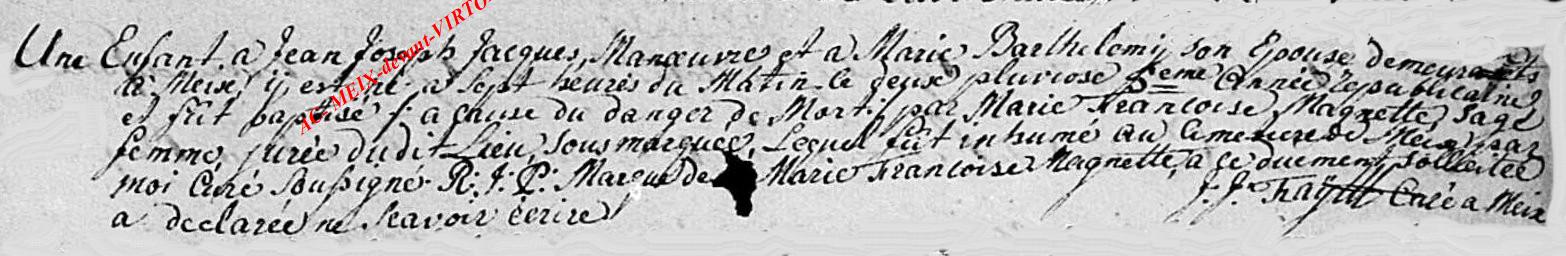 Une Enfant a Jean Joseph Jacques, Manœuvre et a Marie Barthelemy son Epouse demeurants
à Meix, y est né a Sept heures du Matin le deux pluviose 5eme Année republicaine
et fût baptisé /: a cause du danger de Mort :/ par Marie Francoise Magnette sage
femme, jurée dudit Lieu, sousmarquée, Lequel fût inhumé au Cimetiere de Meix par
moi Curé soussigné R: J: P: Marque de Marie Francoise Magnette, a ce duement sollicitée
a declarée ne Scavoir écrire
J: J: Curé a Meix
AC. MEIX-devant-VIRTO